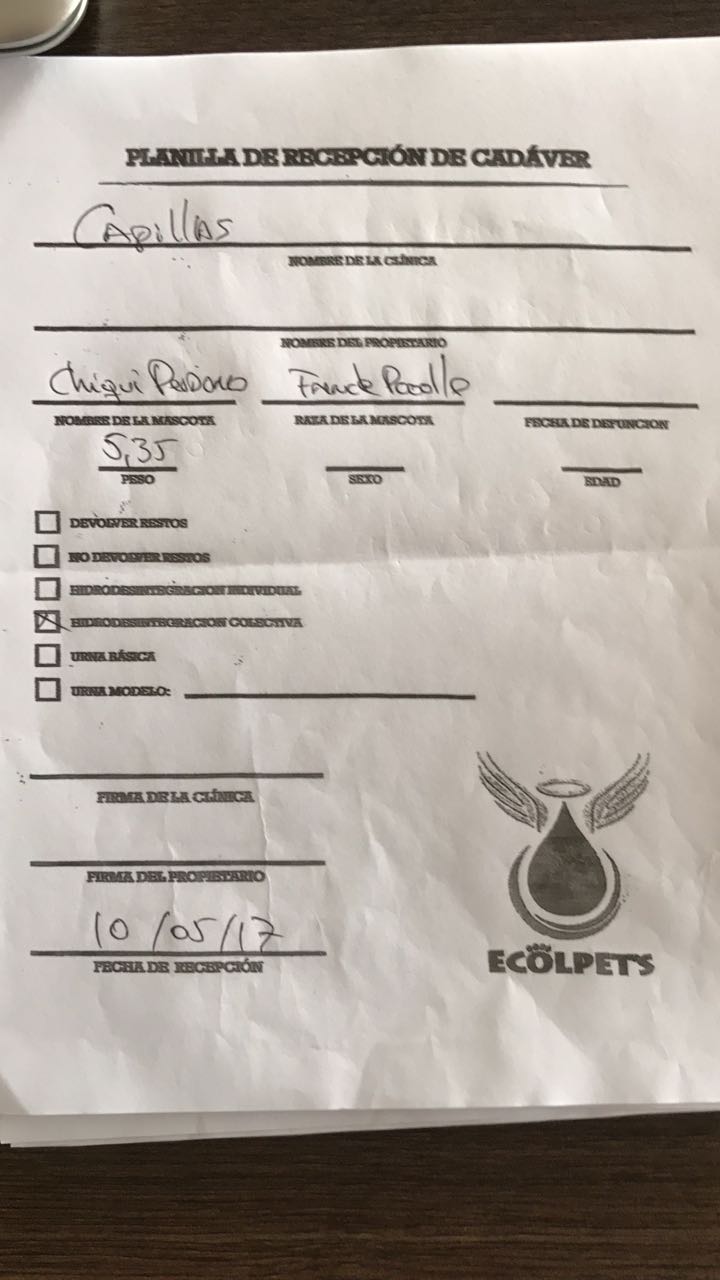 PLANILLA DE RECEPCIÓN DE CADÁVER
Capillas
NOMBRE DE LA CLÍNICA
NOMBRE DEL PROPIETARIO
Chiqui French Poodle
NOMBRE DE LA MASCOTA RAZA DE LA MASCOTA FECHA DE DEFUNCION
5,35
PESO SEXO EDAD
DEVOLVER RESTOS
NO DEVOLVER RESTOS
HIDRODESINTEGRACION INDIVIDUAL
HIDRODESINTEGRACION COLECTIVA
URNA BÁSICA
URNA MODELO:
FIRMA DE LA CLÍNICA
FIRMA DEL PROPIETARIO
10/05/17
FECHA DE RECEPCIÓN
ECOLPETS